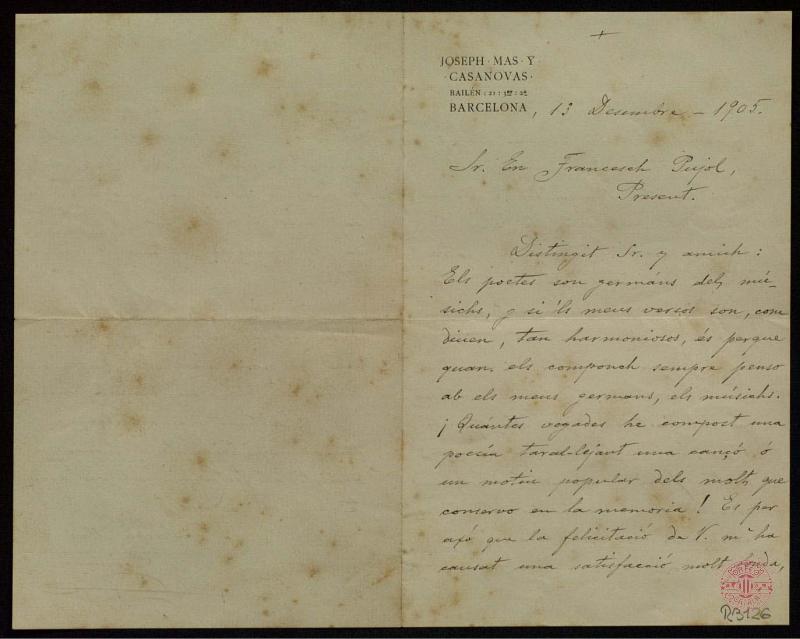 +
JOSEPH · MAS · Y
· CASANOVAS ·
BAILÉN : 21 : 3er : 2ª
BARCELONA, 13 Desembre - 1905.
Sr. En Francesch Pujol,
Present.
Distingit Sr. y amich :
Els poetes son germáns dels mú-
sichs, y si 'ls meus versos son, com
diuen, tan harmoniosos, és perque
quan els componch sempre penso
ab els meus germans, els músichs.
¡ Quántes vegades he compost una
poesía taral-lejant una cançó ó
un motiu popular dels molts que
conservo en la memoria ! Es per
axó que la felicitació de V. m' ha
causat una satisfacció molt fonda,
R3126